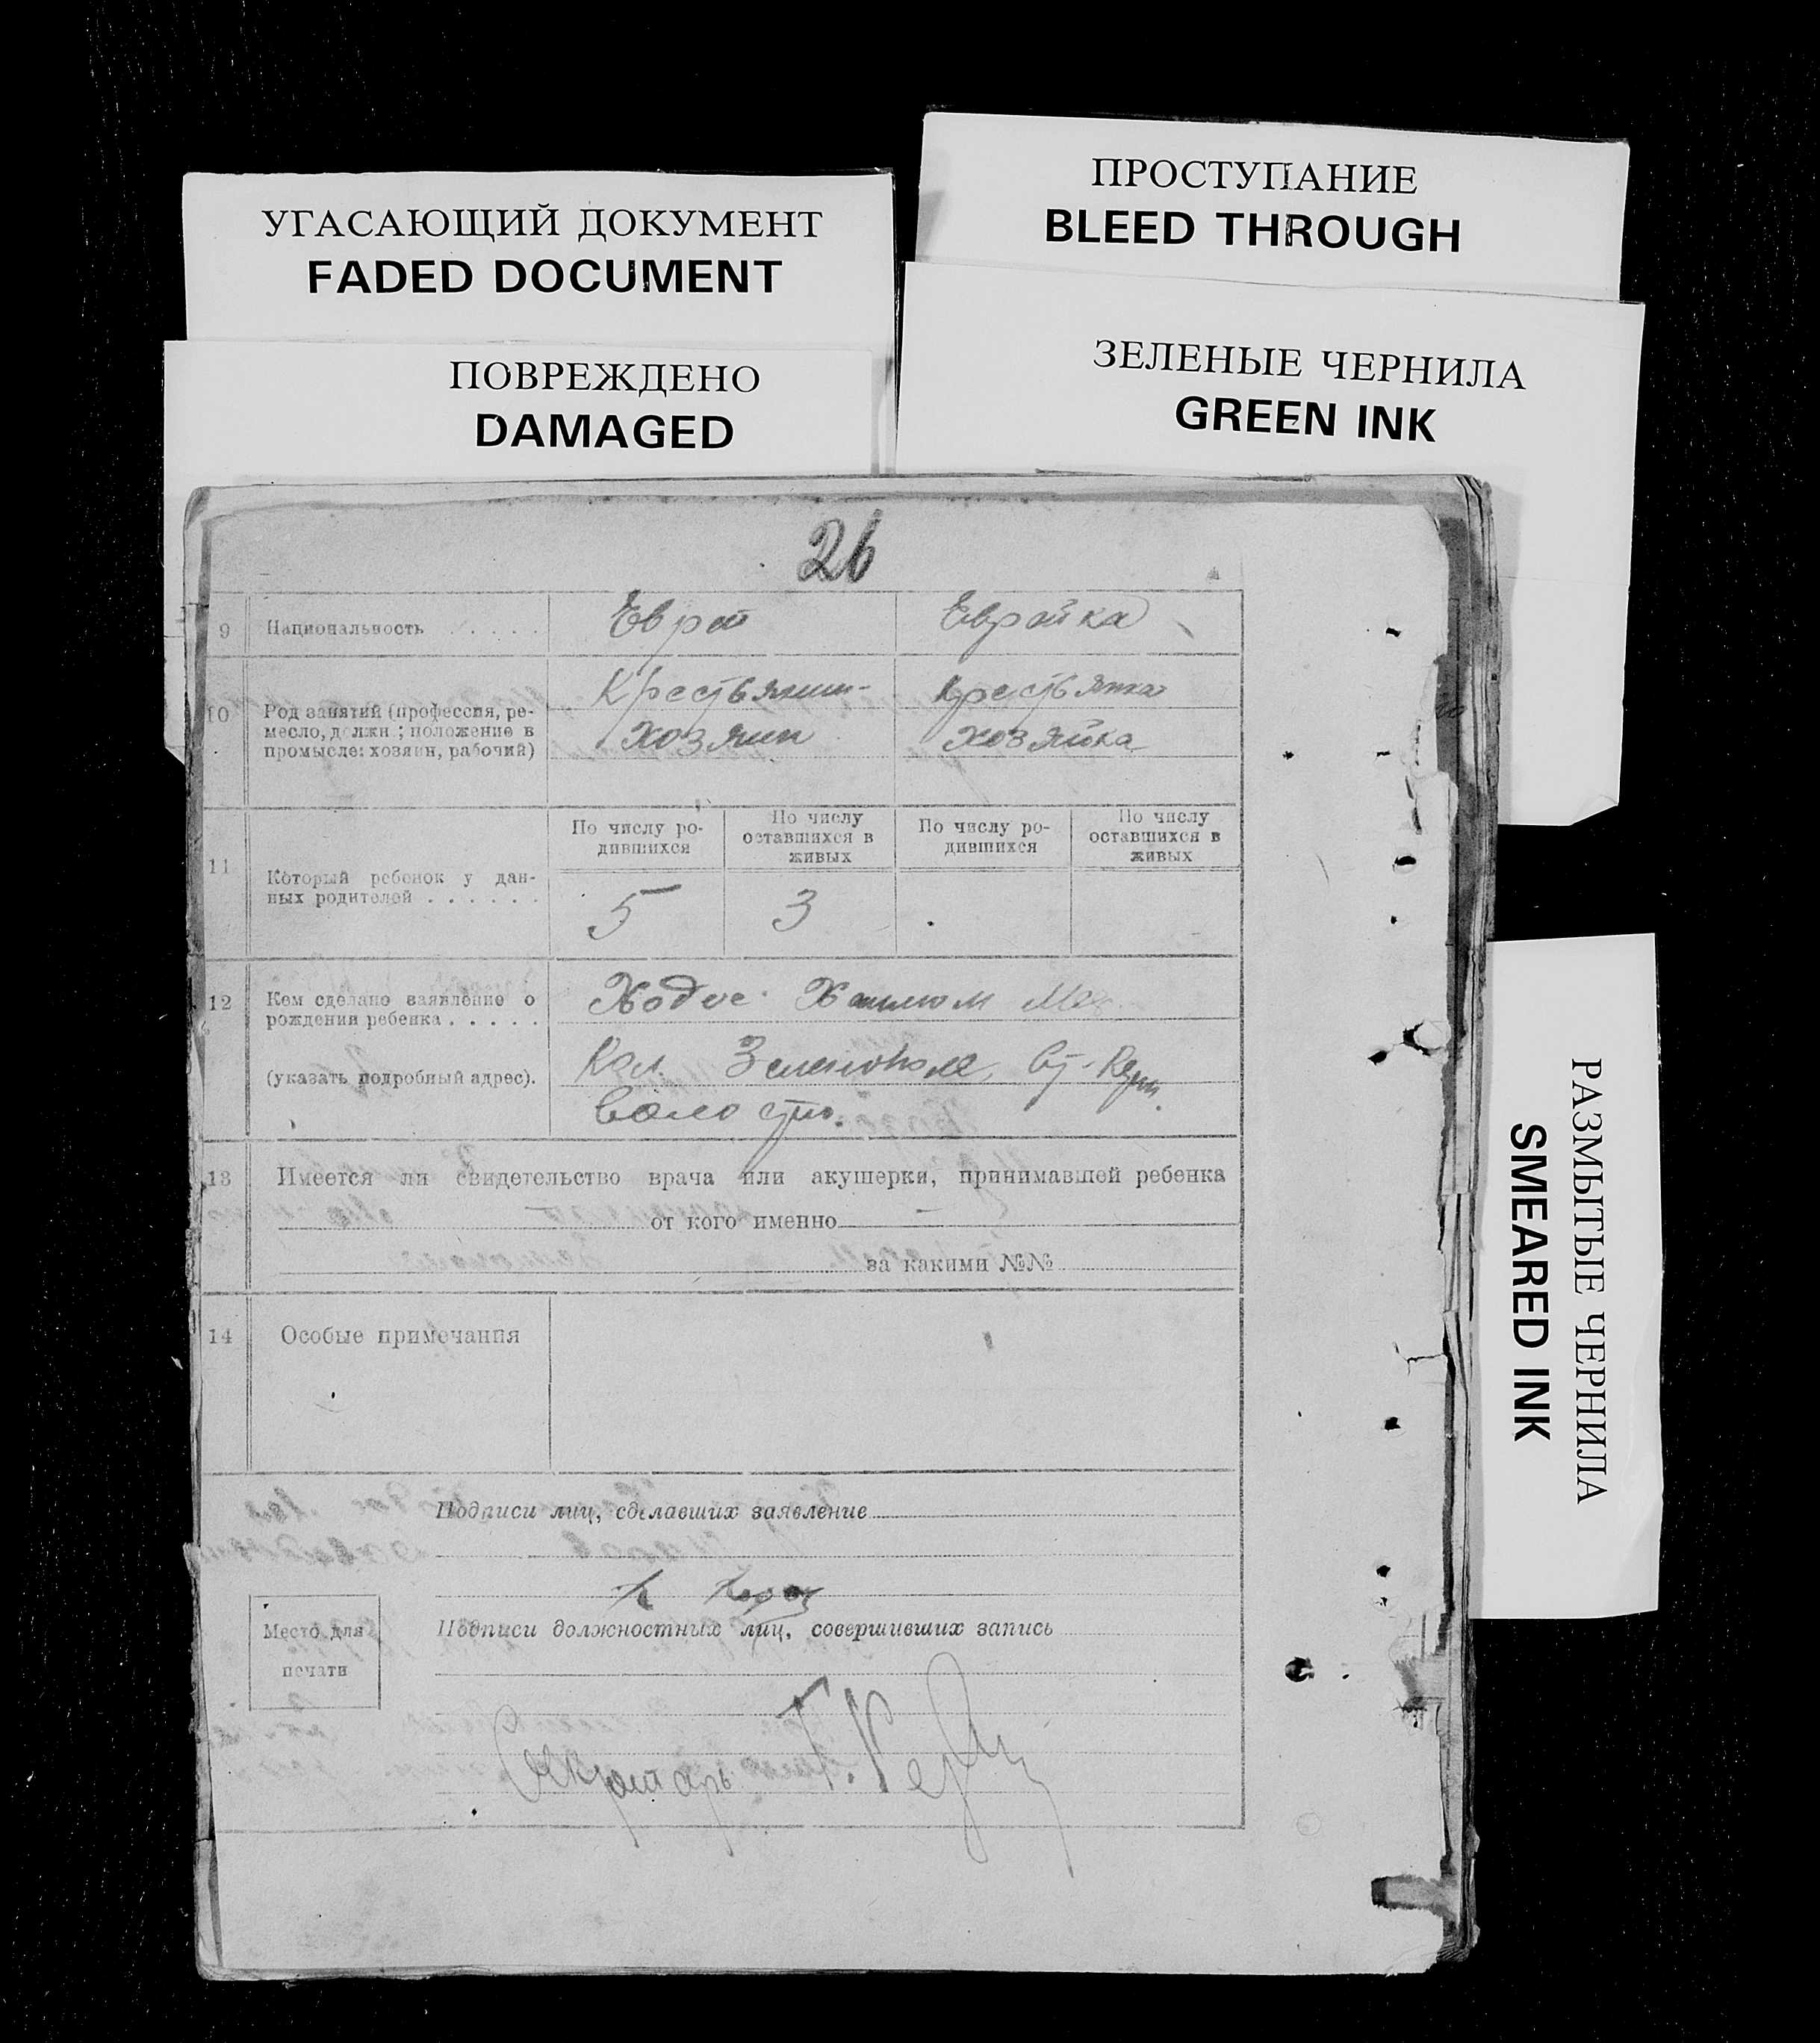 УГАСАЮЩИЙ ДОКУМЕНТ
FADED DOCUMENT
ПРОСТУПАНИЕ
BLEED THROUGH
ПОВРЕЖДЕНО
DAMAGED
ЗЕЛЕНЫЕ ЧЕРНИЛА
GREEN INK
РАЗМЫТЫЕ ЧЕРНИЛА
SMEARED INK
26
9 Национальность . . . . . Еврей Еврейка
10 Род занятий (профессия, ре-
месло, должн.; положение в
промысле: хозяин, рабочий)
Крестьянин- Крестьянка
Хозяин Хозяйка
11 Который ребенок у дан-
ных родителей . . . . . .
По числу ро-
дившихся
По числу
оставшихся в
живых
По числу ро-
дившихся
По числу
оставшихся в
живых
5 3
12 Кем сделано заявление о
рождении ребенка . . . . .
(указать подробный адрес).
Ходос
Кол. Зеленополе,
волости.
13 Имеется ли свидетельство врача или акушерки, принимавшей ребенка
от кого именно
за какими №№
14 Особые примечания
Подписи лиц, сделавших заявление
Место для
печати
Подписи должностных лиц, совершивших запись
Секретарь